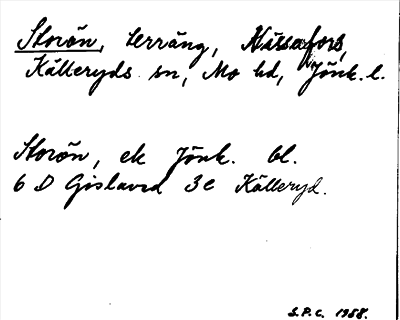 Storön, terräng, Nässefors,
Källeryds sn, Mo hd, Jönk. l.
Storön, ek Jönk. bl.
6 D Gislaved 3e Källeryd.
S.P.C. 1958.